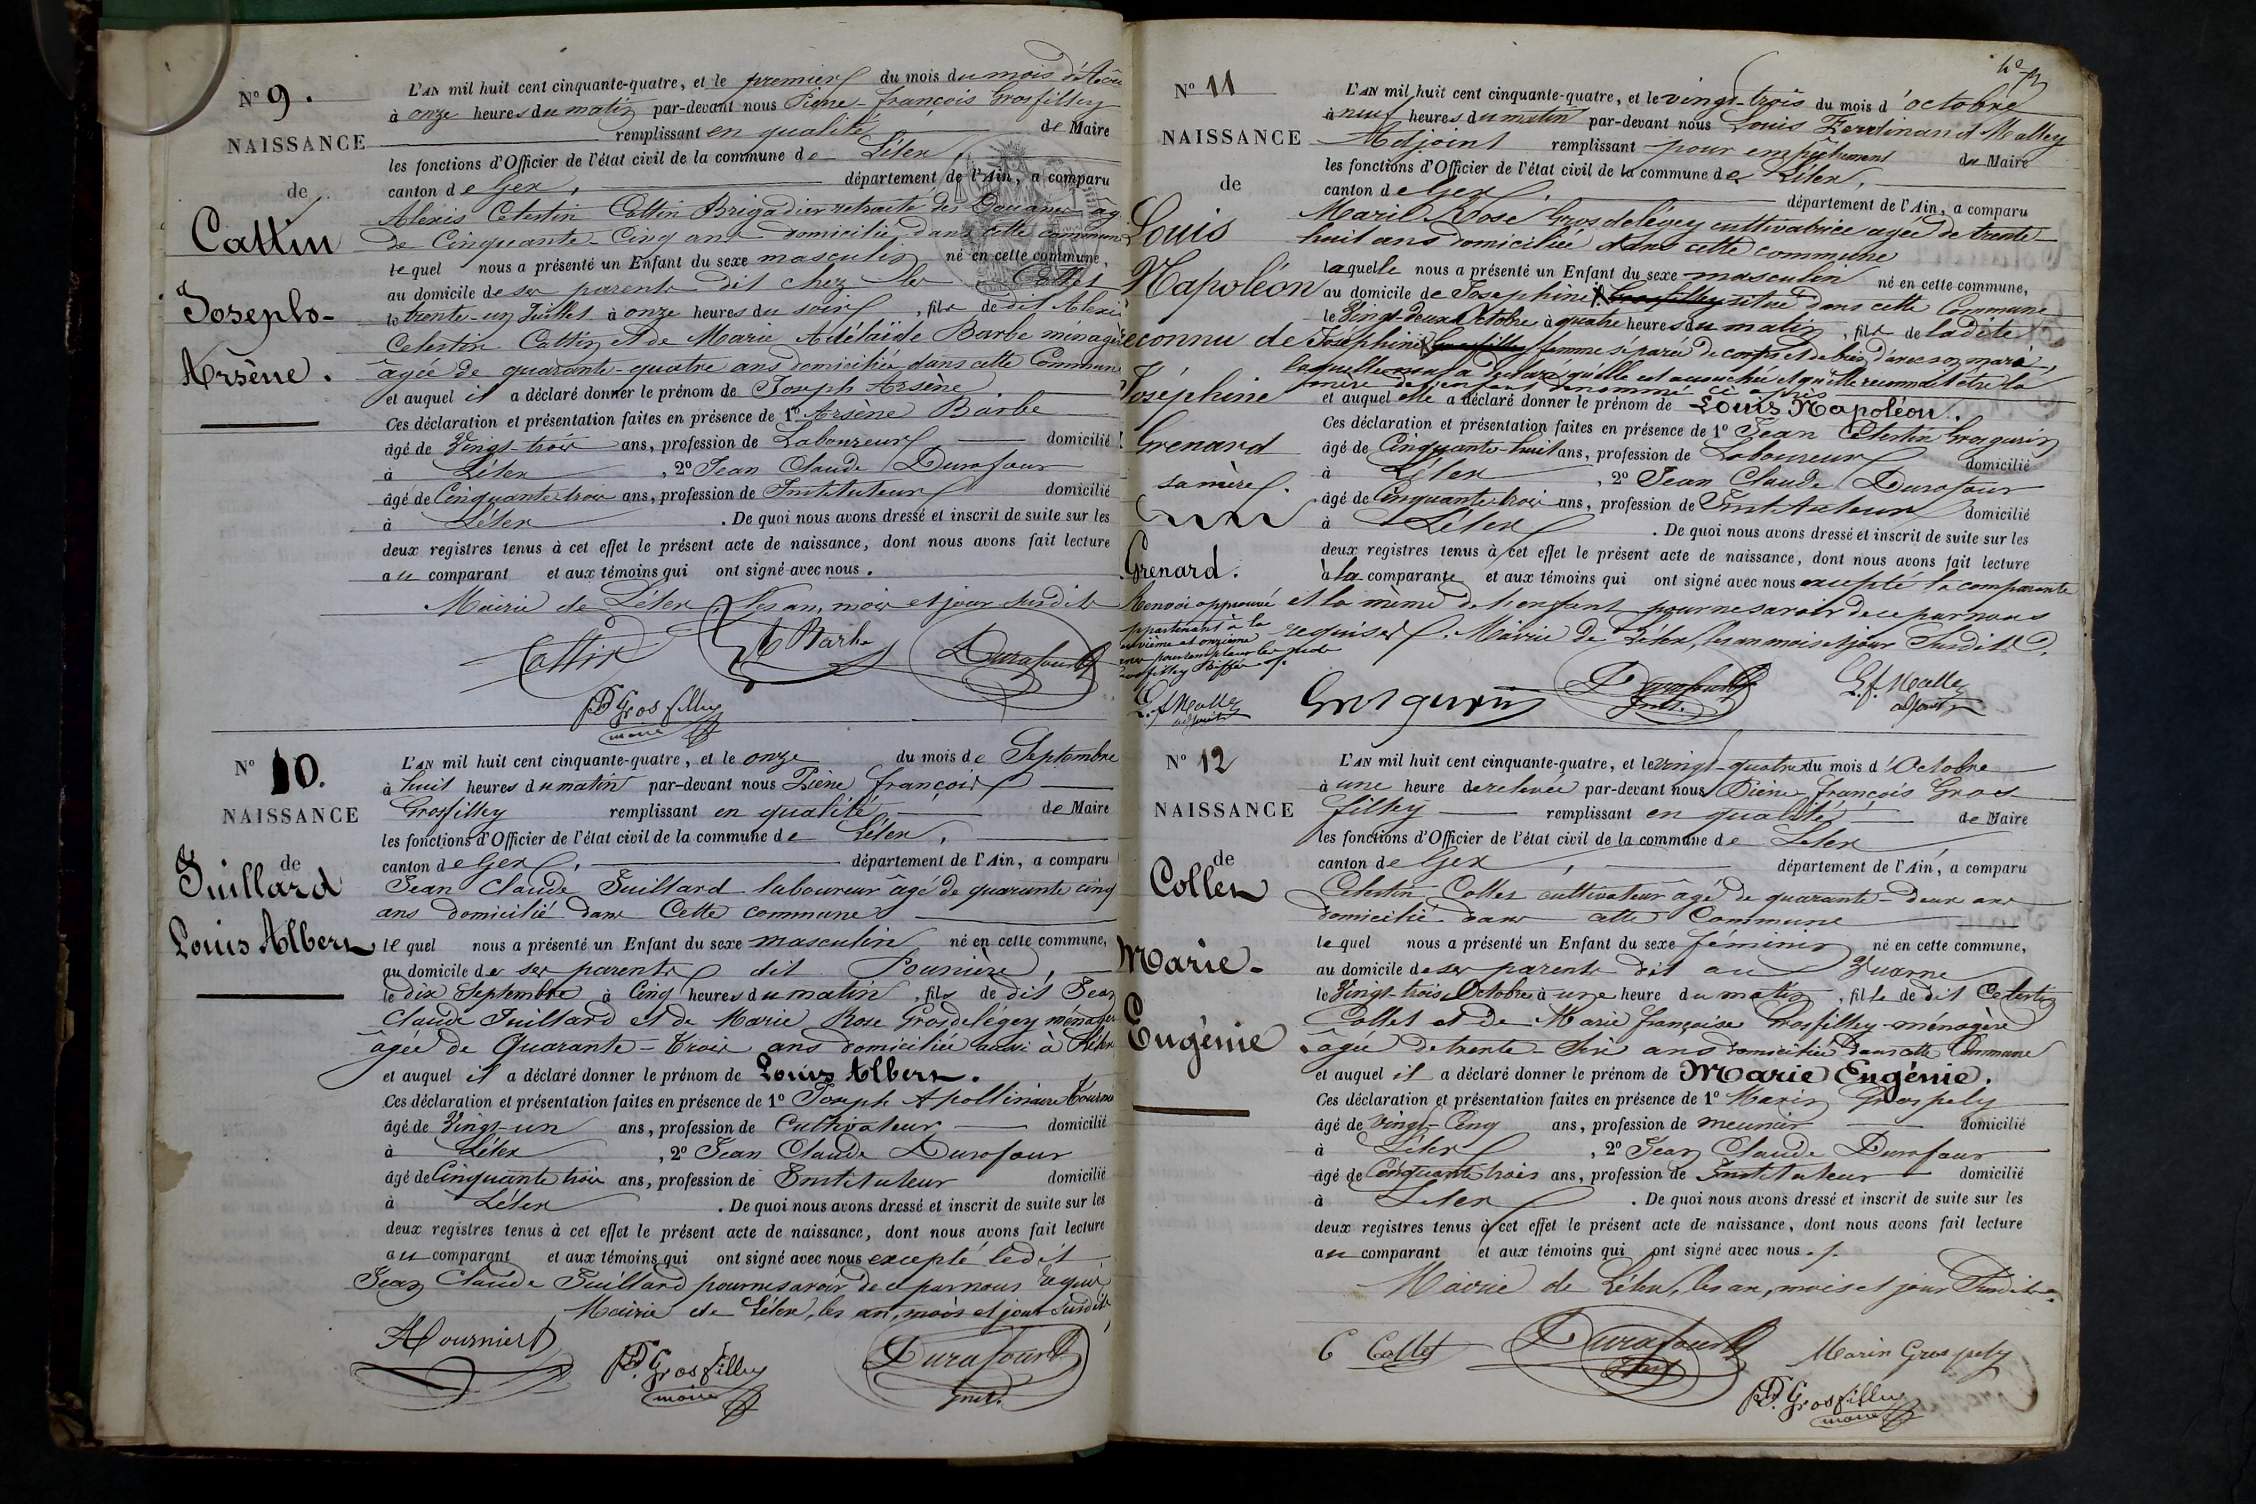 N° 9.
NAISSANCE
de
Cattin
Joseph-
Arsène.
L'AN mil huit cent cinquante-quatre, et le premier du mois du mois d'Août
à onze heures du matin par-devant nous Pierre-françois Grosfilley
remplissant en qualité de Maire
les fonctions d'Officier de l'état civil de la commune de Lélex,
canton de Gex, département de l'Ain, a comparu
Alexis Célestin Cattin Brigadier retraité des Douanes âgé
de Cinquante-Cinq ans domicilié dans cette commune
lequel nous a présenté un Enfant du sexe masculin né en cette commune,
au domicile de ses parents dit chez les Collet
le trente-un Juillet à onze heures du soir, fils de dit Alexis
Célestin Cattin et de Marie Adélaïde Barbe ménagère
âgée de quarante-quatre ans domiciliée dans cette Commune
et auquel il a déclaré donner le prénom de Joseph Arsène
Ces déclaration et présentation faites en présence de 1° Arsène Barbe
âgé de Vingt-trois ans, profession de Laboureur domicilié
à Lélex, 2° Jean Claude Durafour
âgé de Cinquante trois ans, profession de Instituteur domicilié
à Lélex. De quoi nous avons dressé et inscrit de suite sur les
deux registres tenus à cet effet le présent acte de naissance, dont nous avons fait lecture
au comparant et aux témoins qui ont signé avec nous.
Mairie de Lélex, les an, mois et jour susdits
Cattin A Barbe Durafour
P.F. Grosfilley
maire
N° 10.
NAISSANCE
de
Juillard
Louis Albert
L'AN mil huit cent cinquante-quatre, et le onze du mois de Septembre
à huit heures du matin par-devant nous Pierre françois
Grosfilley remplissant en qualité de Maire
les fonctions d'Officier de l'état civil de la commune de Lélex,
canton de Gex, département de l'Ain, a comparu
Jean Claude Juillard laboureur âgé de quarante cinq
ans domicilié dans Cette commune
lequel nous a présenté un Enfant du sexe masculin né en cette commune,
au domicile de ses parents dit
le dix Septembre à Cinq heures du matin, fils de dit Jean
Claude Juillard et de Marie Rose Grosdelégey ménagère
âgée de Quarante-Trois ans domiciliée aussi à Lélex
et auquel il a déclaré donner le prénom de Louis Albert.
Ces déclaration et présentation faites en présence de 1° Joseph Apollinaire Tournier
âgé de Vingt-un ans, profession de Cultivateur domicilié
à Lélex, 2° Jean Claude Durafour
âgé de Cinquante trois ans, profession de Instituteur domicilié
à Lélex. De quoi nous avons dressé et inscrit de suite sur les
deux registres tenus à cet effet le présent acte de naissance, dont nous avons fait lecture
au comparant et aux témoins qui ont signé avec nous excepté ledit
Jean Claude Juillard pour ne savoir de ce par nous requis
Mairie de Lélex, les an, mois et jour susdits
A Tournier P.F. Grosfilley Durafour
maire Inst.
N° 11
NAISSANCE
de
Louis
Napoléon
reconnu de
Joséphine
Grenard
sa mère.
Grenard.
L'AN mil huit cent cinquante-quatre, et le vingt-trois du mois d'octobre
à neuf heures du matin par-devant nous Louis Ferdinand Malley
Adjoint remplissant pour empêchement du Maire
les fonctions d'Officier de l'état civil de la commune de Lélex,
canton de Gex, département de l'Ain, a comparu
Marie Rose Grosdelégey cultivatrice âgée de trente-
huit ans domiciliée dans cette commune
laquelle nous a présenté un Enfant du sexe masculin né en cette commune,
au domicile de Joséphine Grosfilley située dans cette Commune
le Vingt-deux Octobre à quatre heures du matin, fils de ladite
Joséphine Grosfilley femme séparée de corps et de bien d'avec son mari,
laquelle nous a déclaré qu'elle est accouchée et qu'elle reconnait être la
mère de l'enfant dénommé ci après
et auquel elle a déclaré donner le prénom de Louis Napoléon.
Ces déclaration et présentation faites en présence de 1° Jean Célestin Grosgurin
âgé de Cinquante-huit ans, profession de Laboureur domicilié
à Lélex, 2° Jean Claude Durafour
âgé de Cinquante-trois ans, profession de Instituteur domicilié
à Lélex. De quoi nous avons dressé et inscrit de suite sur les
deux registres tenus à cet effet le présent acte de naissance, dont nous avons fait lecture
à la comparante et aux témoins qui ont signé avec nous excepté la comparante
et la mère de l'enfant pour ne savoir de ce par nous
requises. Mairie de Lélex, les an mois et jour susdits.
Renvoi approuvé
appartenant à la
et onzième
Grosfilley Biffés
L.f. Malley
adjoint
Grosgurin Durafour L.f. Malley
Inst. adjoint
N° 12
NAISSANCE
de
Collet
Marie-
Eugénie
L'AN mil huit cent cinquante-quatre, et le vingt-quatre du mois d'Octobre
à une heure de relevée par-devant nous Pierre françois Gros
filley remplissant en qualité de Maire
les fonctions d'Officier de l'état civil de la commune de Lélex
canton de Gex, département de l'Ain, a comparu
Célestin Collet cultivateur âgé de quarante-deux ans
domicilié dans cette Commune
lequel nous a présenté un Enfant du sexe féminin né en cette commune,
au domicile de ses parents dit au
le Vingt-trois Octobre à une heure du matin, fille de dit Célestin
Collet et de Marie françoise Grosfilley ménagère
âgée de trente-Six ans domiciliée dans cette Commune
et auquel il a déclaré donner le prénom de Marie Eugénie.
Ces déclaration et présentation faites en présence de 1° Marin Grospely
âgé de vingt-Cinq ans, profession de meunier domicilié
à Lélex, 2° Jean Claude Durafour
âgé de Cinquante trois ans, profession de Instituteur domicilié
à Lélex. De quoi nous avons dressé et inscrit de suite sur les
deux registres tenus à cet effet le présent acte de naissance, dont nous avons fait lecture
au comparant et aux témoins qui ont signé avec nous.
Mairie de Lélex, les an, mois et jour Susdits.
C Collet Durafour Marin Grospely
Inst P.F. Grosfilley
maire